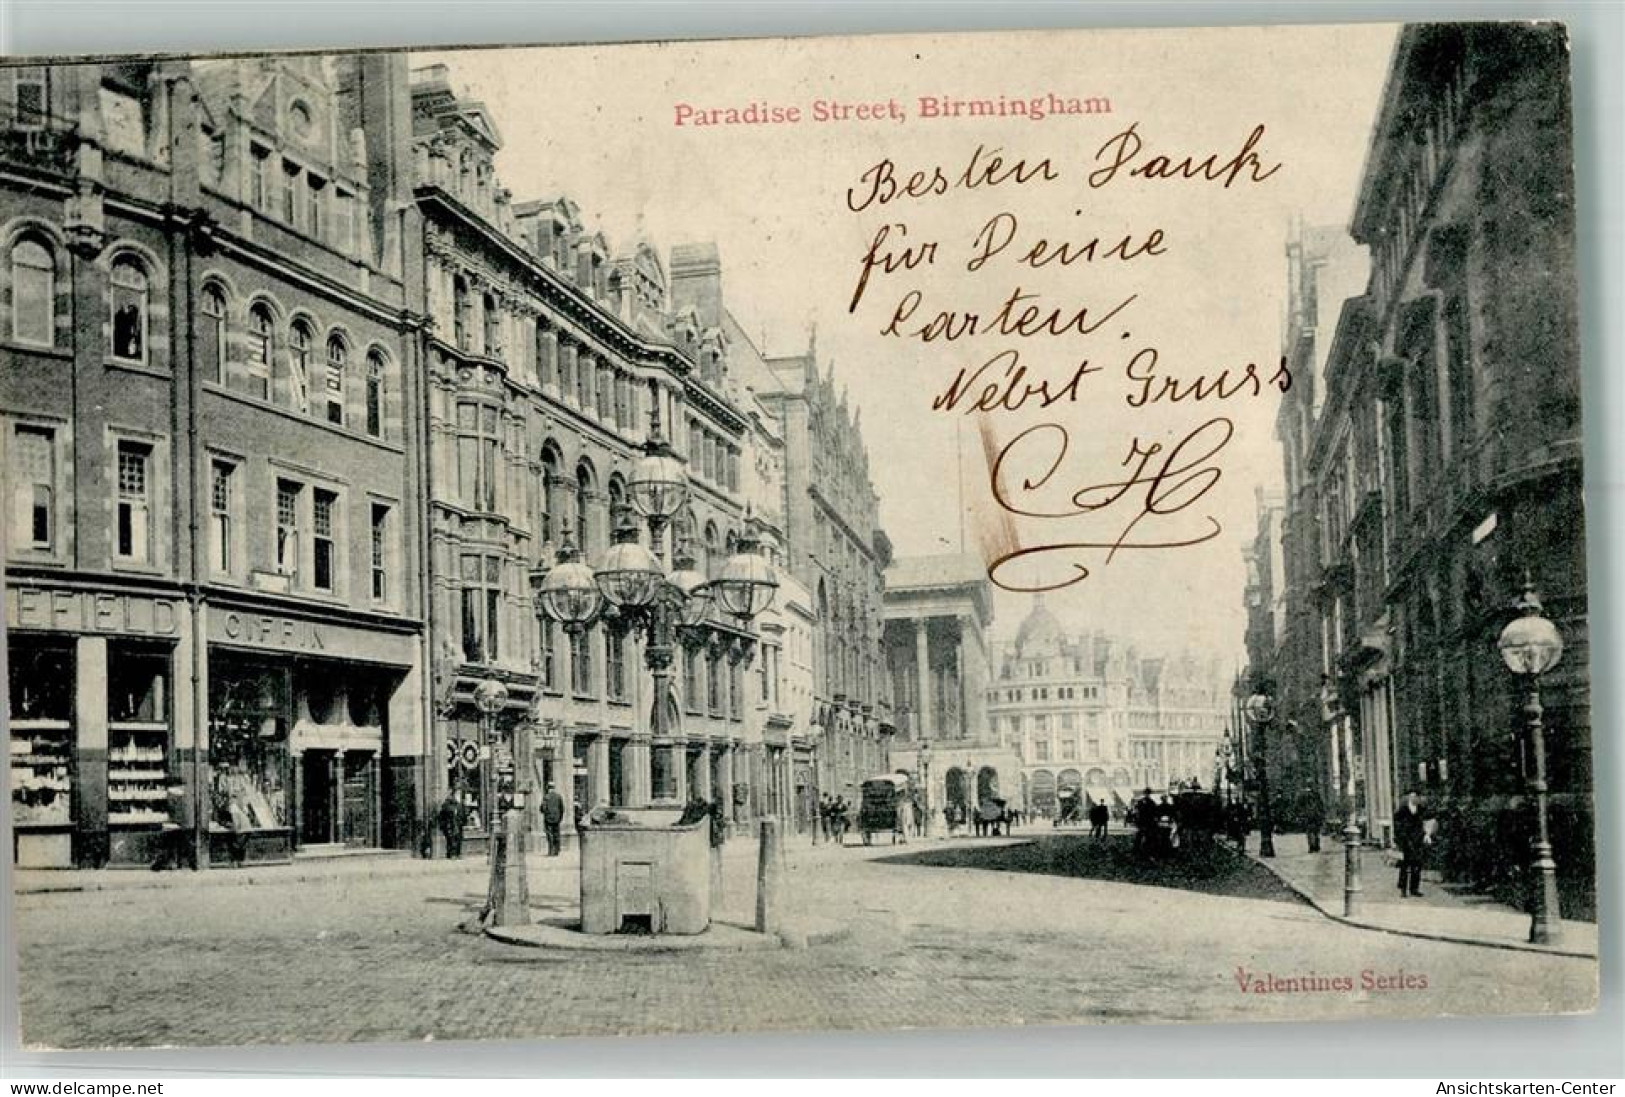 Paradise Street, Birmingham
Besten Dank
für Deine
Carten.
Nebst Gruss
CH
EFIELD
GIFFIN
Valentines Series
delcampe.net
Ansichtskarten-Center